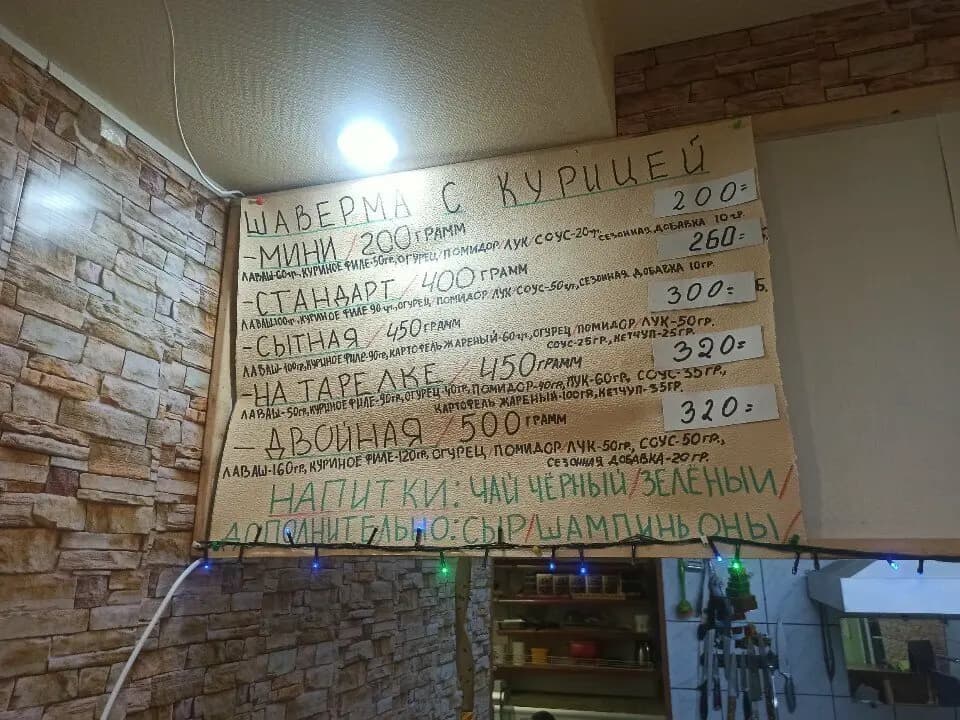 ШАВЕРМА С КУРИЦЕЙ
-МИНИ / 200 ГРАММ 200=
ЛАВАШ-60гр., КУРИНОЕ ФИЛЕ-50гр, ОГУРЕЦ/ПОМИДОР/ЛУК/СОУС-20гр, СЕЗОННАЯ ДОБАВКА 10гр.
-СТАНДАРТ / 400 ГРАММ 260=
ЛАВАШ100гр., КУРИНОЕ ФИЛЕ 90гр., ОГУРЕЦ/ПОМИДОР/ЛУК/СОУС-50гр., СЕЗОННАЯ ДОБАВКА 10гр.
-СЫТНАЯ / 450 ГРАММ 300= Б.
ЛАВАШ-100гр, КУРИНОЕ ФИЛЕ-90гр, КАРТОФЕЛЬ ЖАРЕНЫЙ-60гр, ОГУРЕЦ/ПОМИДОР/ЛУК-50гр.
СОУС-25гр., КЕТЧУП-25гр.
-НА ТАРЕЛКЕ / 450 ГРАММ 320=
ЛАВАШ-50гр, КУРИНОЕ ФИЛЕ-90гр, ОГУРЕЦ-40гр, ПОМИДОР-40гр, ЛУК-60гр, СОУС-35гр,
КАРТОФЕЛЬ ЖАРЕНЫЙ-100гр, КЕТЧУП-35гр.
- ДВОЙНАЯ / 500 ГРАММ 320=
ЛАВАШ-160гр, КУРИНОЕ ФИЛЕ-120гр, ОГУРЕЦ/ПОМИДОР/ЛУК-50гр, СОУС-50гр.,
СЕЗОННАЯ ДОБАВКА-20гр.
НАПИТКИ: ЧАЙ ЧЁРНЫЙ/ЗЕЛЁНЫЙ/
ДОПОЛНИТЕЛЬНО: СЫР/ШАМПИНЬОНЫ/